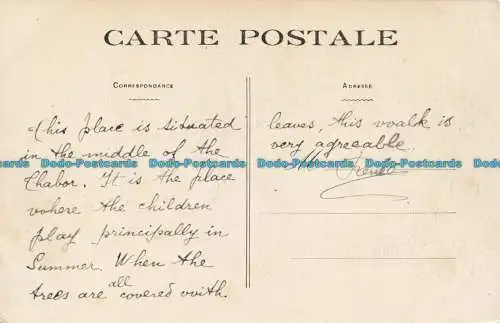 CARTE POSTALE
CORRESPONDANCE
This place is situated
in the middle of the
Chabor. It is the place
vohere the children
play principsally in
Summer. When the
all
trees are covered vvith.
ADRESSE
leaves, this vvalk is
very agreeable.
Renée
Dodo-Postcards Dodo-Postcards Dodo-Postcards Dodo-Postcards